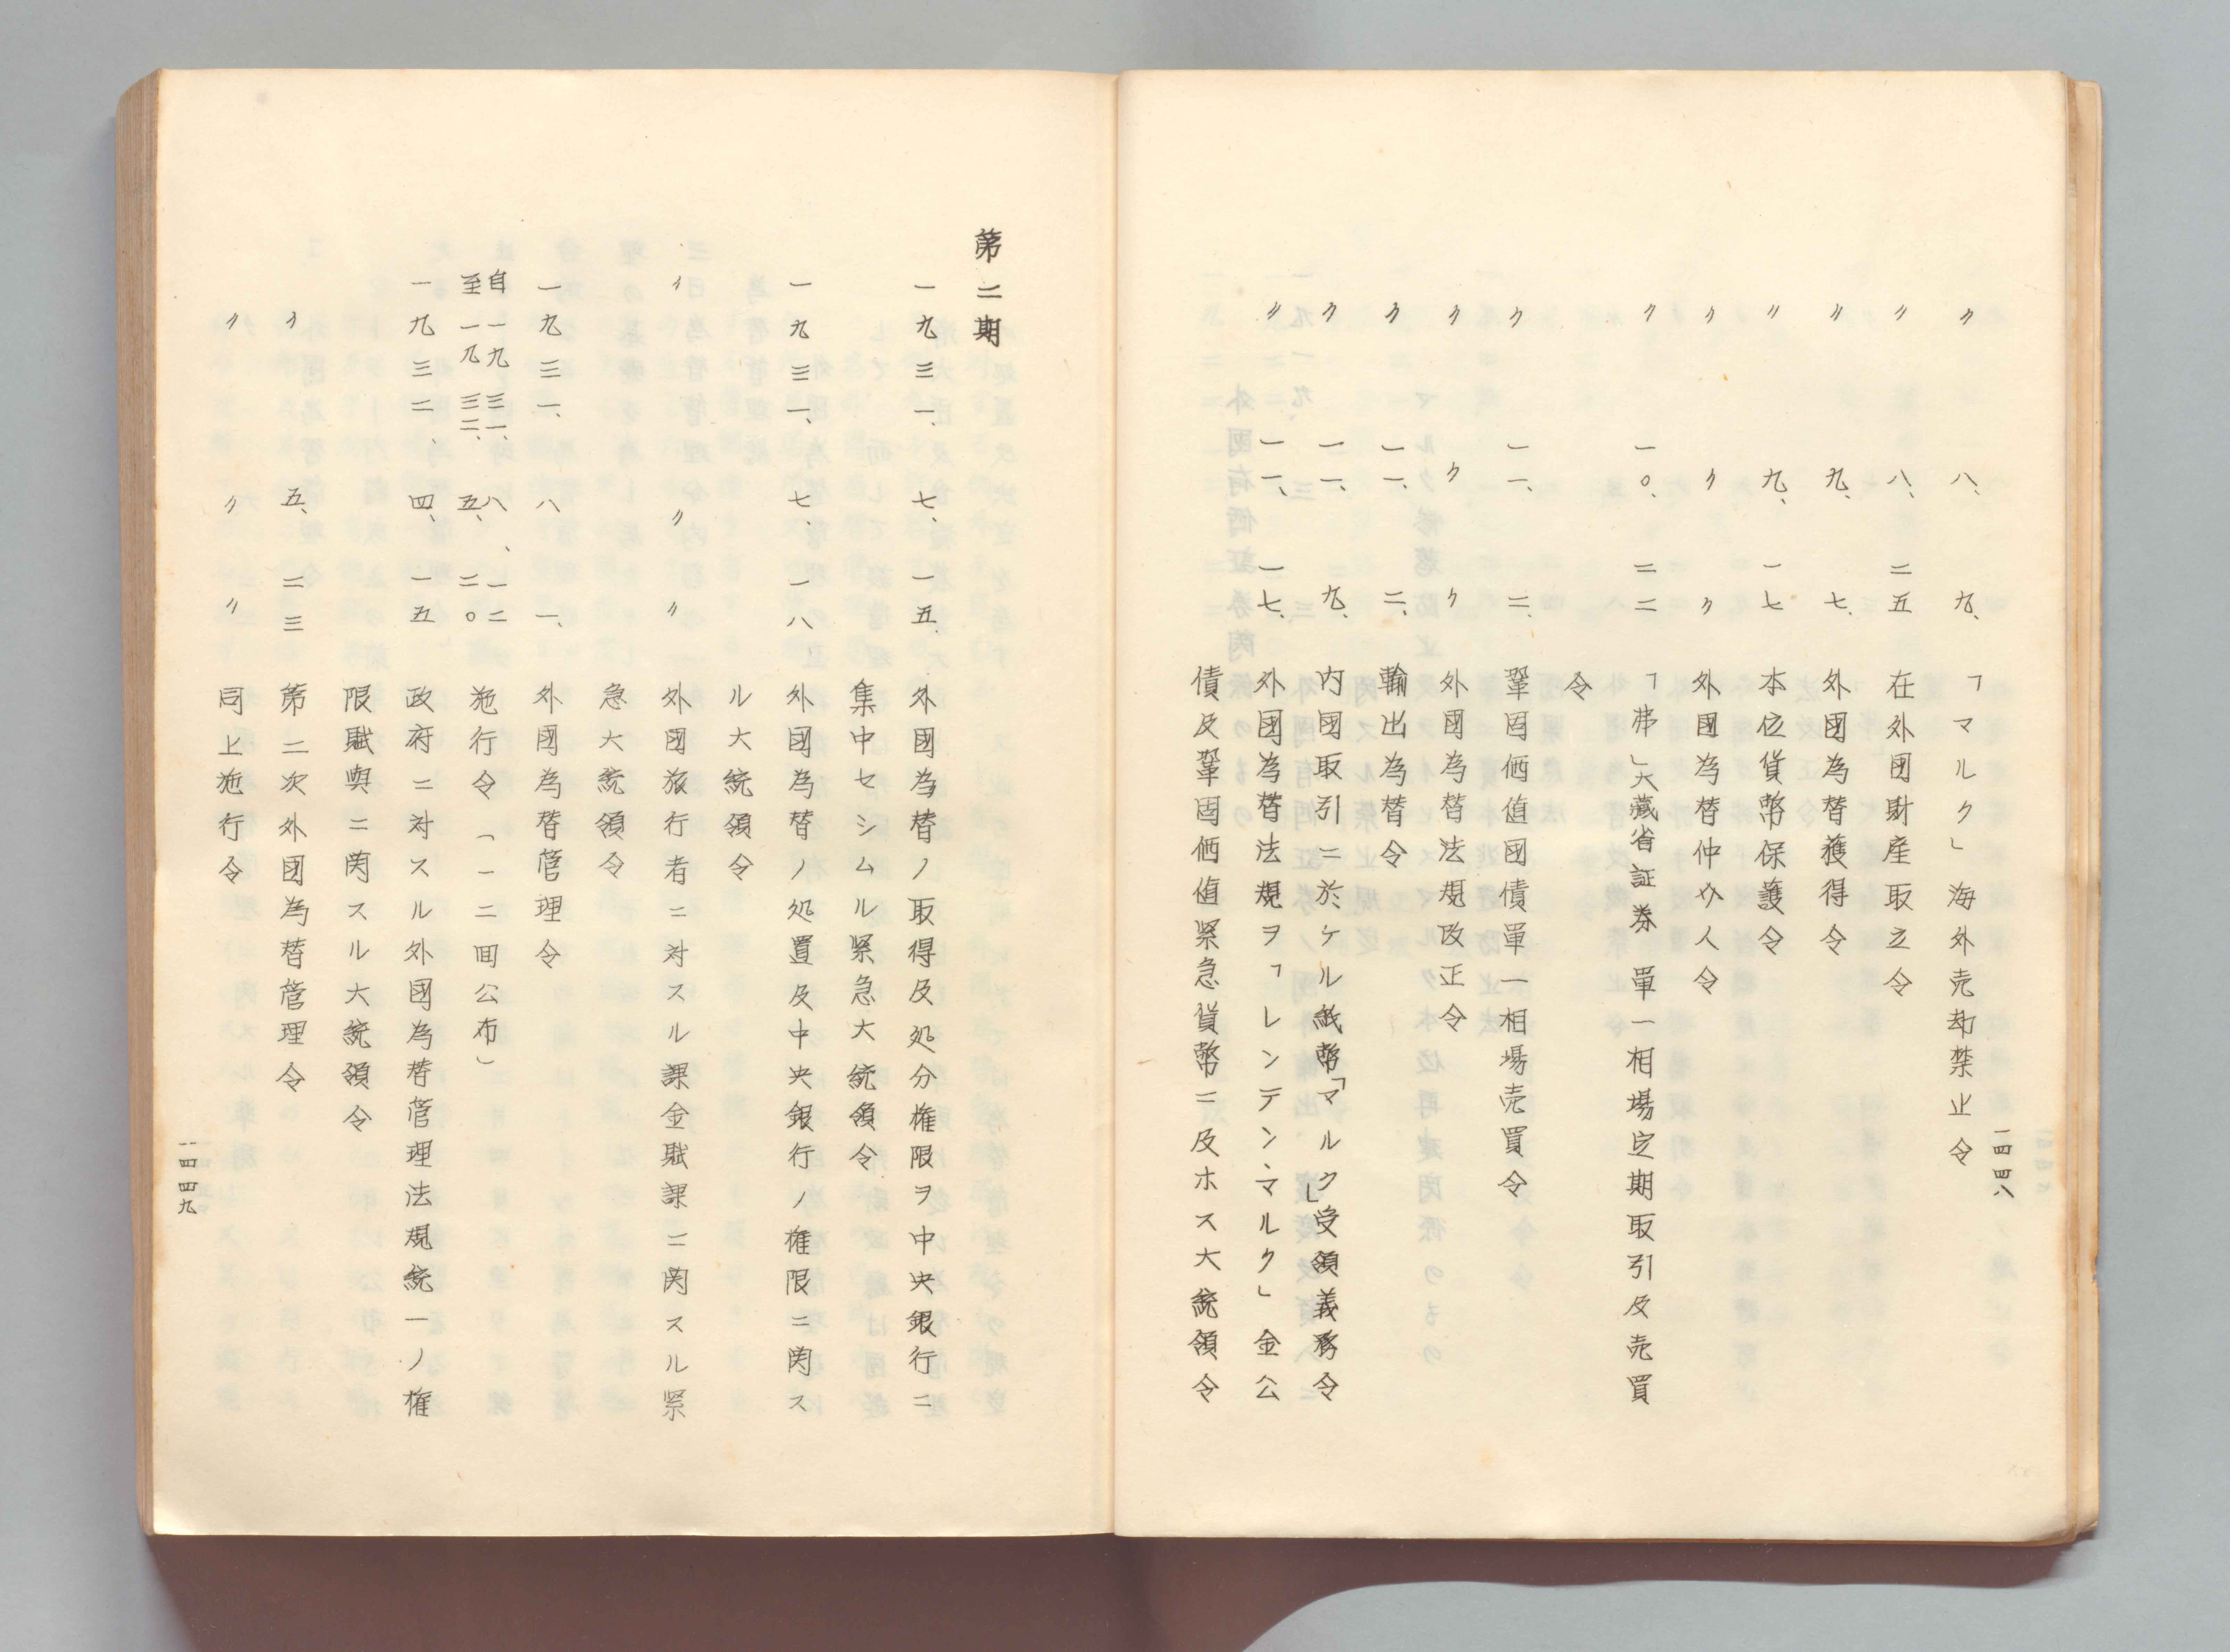 〃 八、 九、 「マルク」海外売却禁止令
〃 八、 二五 在外国財産取立令
〃 九、 七、 外國為替獲得令
〃 九、 一七 本位貨幣保護令
〃 〃 〃 外國為替仲介人令
〃 一〇、 二二 「弗」大藏省証券 單一相場定期取引及売買
令
〃 一一、 二、 鞏固価値國債單一相場売買令
〃 〃 〃 外國為替法規改正令
〃 一一、 二、 輸出為替令
〃 一一、 九、 内國取引ニ於ケル紙幣「マルク」受領義務令
〃 一一、 一七、 外國為替法規ヲ「レンテンマルク」金公
債及鞏固価値緊急貨幣ニ及ホス大統領令
一四四八
第二期
一九三一、 七、 一五、 外國為替ノ取得及処分権限ヲ中央銀行ニ
集中セシムル緊急大統領令
一九三一、 七、 一八、 外國為替ノ処置及中央銀行ノ権限ニ関ス
ル大統領令
〃 〃 〃 外國旅行者ニ対スル課金賦課ニ関スル緊
急大統領令
一九三一、 八 一、 外國為替管理令
自一九三一、 八、 一二
至一九三二、 五、 二〇 施行令（一二回公布）
一九三二、 四、 一五 政府ニ対スル外國為替管理法規統一ノ権
限賦與ニ関スル大統領令
〃 五、 二三 第二次外国為替管理令
〃 〃 〃 同上施行令
一四四九